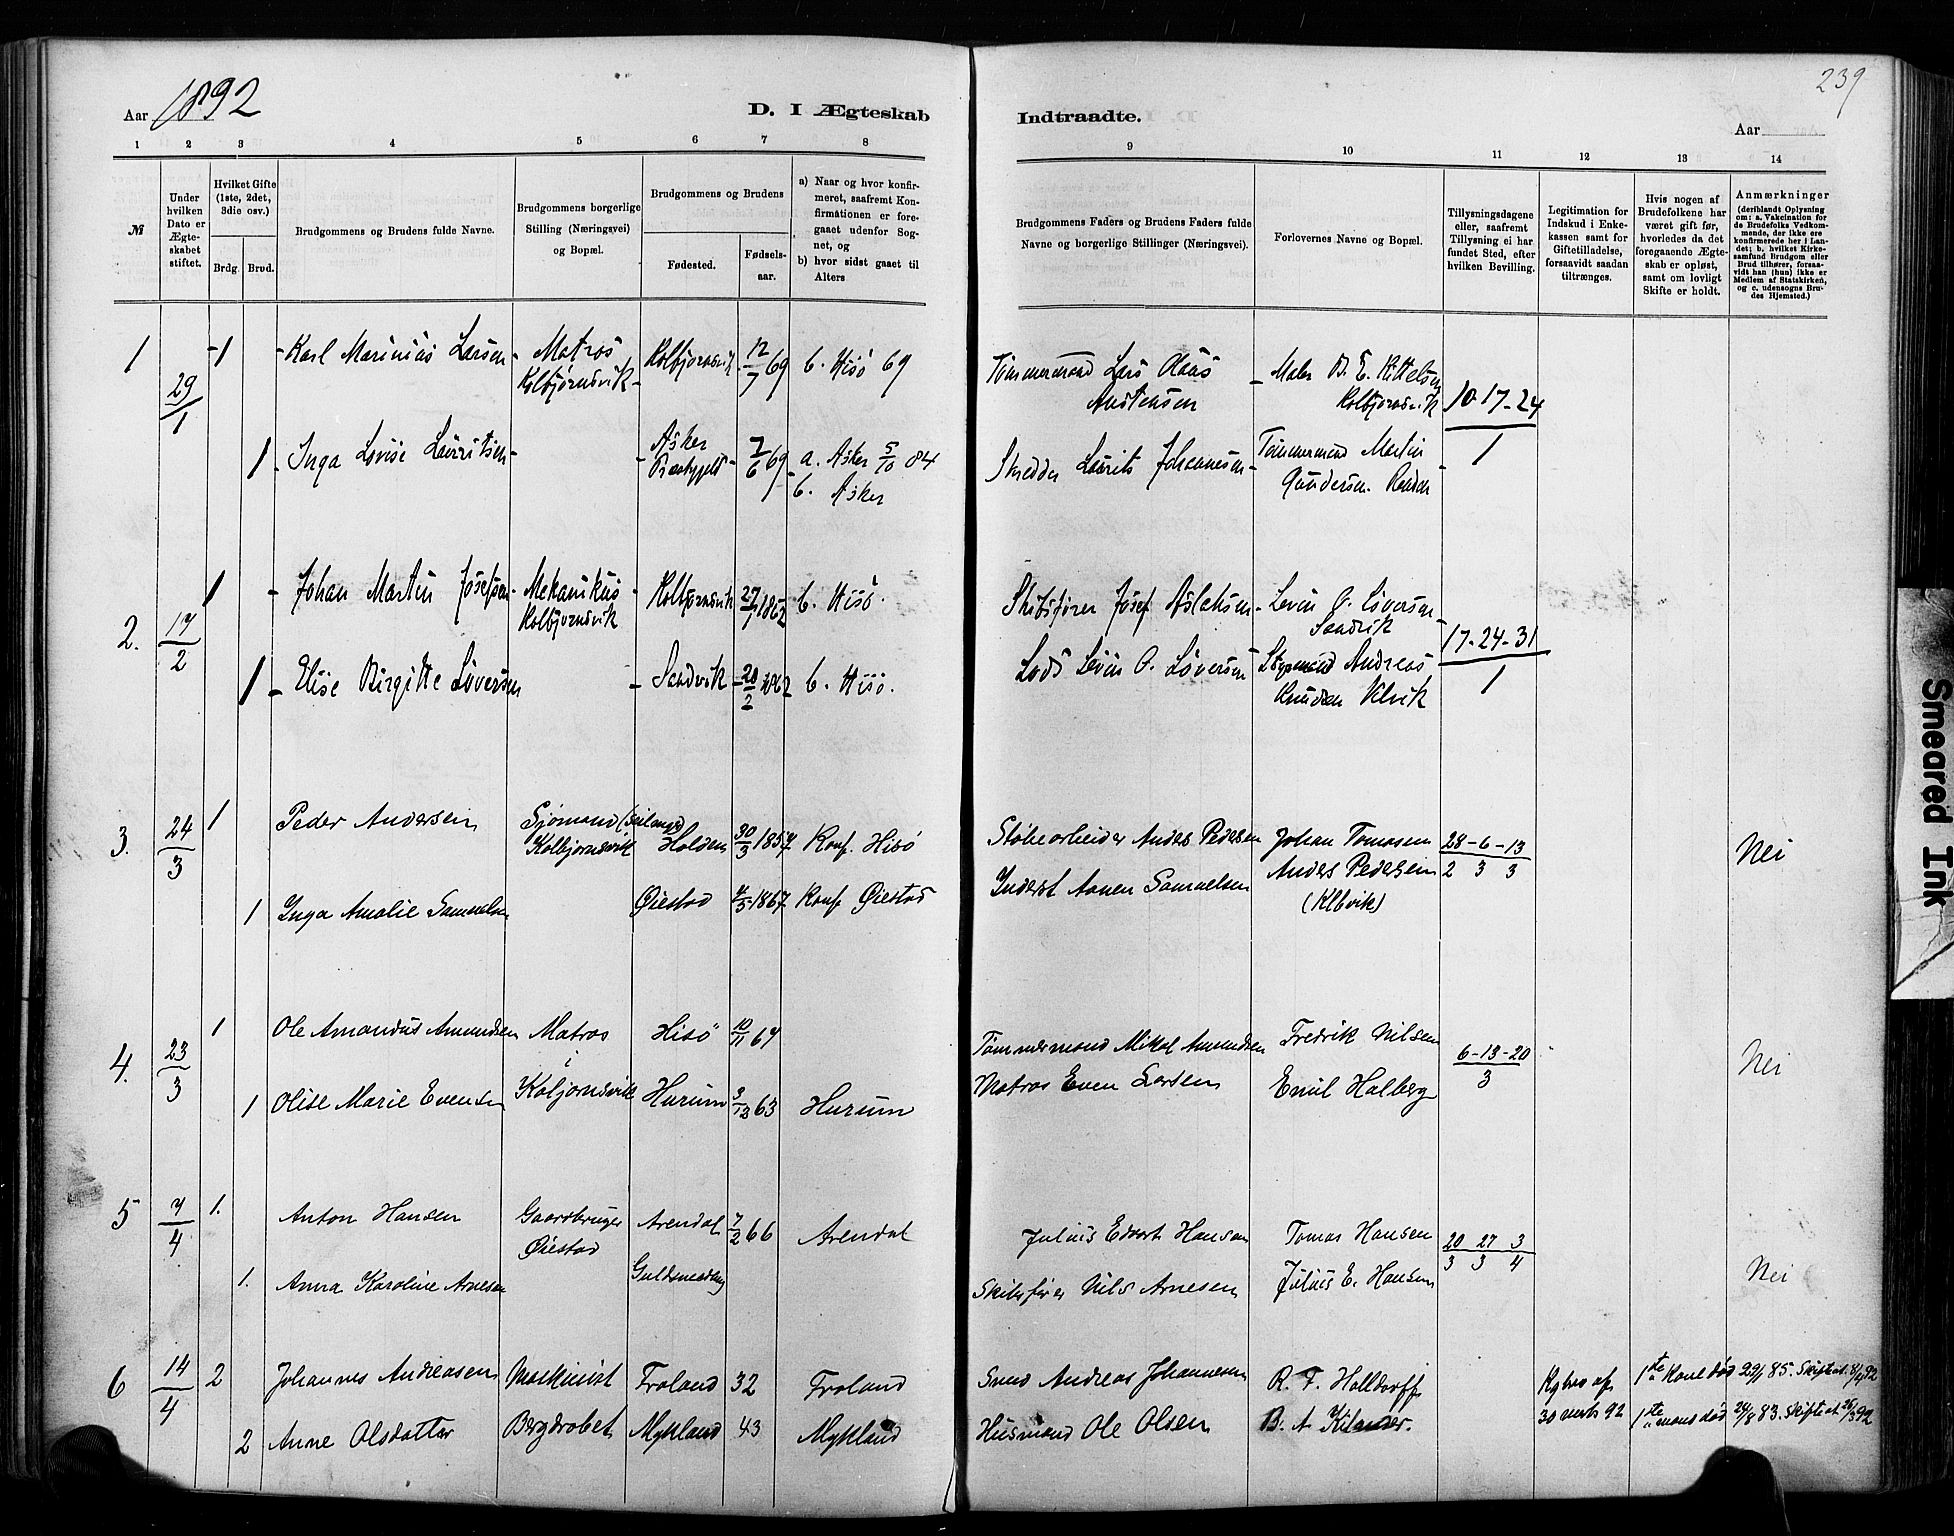 239
Aar 1892
D. I Ægteskab
Indtraadte.
Aar
1 2 3 4 5 6 7 8
9 10 11 12 13 14
№
Under hvilken Dato er Ægteskabet stiftet.
Hvilket Gifte (1ste, 2det, 3die osv.)
Brdg. Brud.
Brudgommens og Brudens fulde Navne.
Brudgommens borgerlige Stilling (Næringsvei) og Bopæl.
Brudgommens og Brudens
Fødested.
Fødselsaar.
a) Naar og hvor konfirmeret, saafremt Konfirmationen er foregaaet udenfor Sognet, og
b) hvor sidst gaaet til Alters
Brudgommens Faders og Brudens Faders fulde Navne og borgerlige Stillinger (Næringsvei).
Forlovernes Navne og Bopæl.
Tillysningsdagene eller, saafremt Tillysning ei har fundet Sted, efter hvilken Bevilling.
Legitimation for Indskud i Enkekassen samt for Giftetilladelse, forsaavidt saadan tiltrænges.
Hvis nogen af Brudefolkene har været gift før, hvorledes da det foregaaende Ægteskab er opløst, samt om lovligt Skifte er holdt.
Anmærkninger
(deriblandt Oplysning om: a. Vakcination for de Brudefolks Vedkommende, der ikke ere konfirmerede her i Landet; b. hvilket Kirkesamfund Brudgom eller Brud tilhører, forsaavidt han (hun) ikke er Medlem af Statskirken, og c. udensogns Brudes Hjemsted.)
1 29/1 1 Karl Marinius Larsen Matros Kolbjørnsvik Kolbjørnsvik 12/7 69 b. Hisö 69 Tømmermand Lars Claus Austensen Maler B. E. Kittelsen Kolbjornsvik 10-17-24/1
1 Inga Lovise Lauritsen Asker Præstegjeld 7/6 69 a. Asker 5/10 84 b. Asker Skredder Laurits Johannesen Tømmermand Martin Gundersen
2. 17/2 1 Johan Martin Josefsen Mekanikus Kolbjornsvik Kolbjornsvik 27/7 1862 b. Hisö. Skibsfører Josef Aslaksen Levin O. Siversen Sandvik 17-24-31/1
1 Elise Birgitte Siversen Sandvik 20/2 1862 b. Hisö. Lods Levin O. Siversen Styrmand Andreas Knudsen
3. 24/3 1 Peder Andersen Sjömand Kolbjornsvik Holden 30/3 1857 Konf. Hisö Støbearbeider Anders Pedersen Johan Tomasen 28-6-13 / 2 3 3 Nei
1 Inga Amalie Samuelsen Øiestad 4/5 1867 Konf. Øiestad Inderst Aanen Samuelsen Anders Pedersen (Klbvik)
4. 23/3 1 Ole Amandus Amundsen Matros i Koljornsvik Hisö 10/11 67 Tømmermand Mikal Amundsen Fredrik Nilsen 6-13-20/3 Nei
1 Olise Marie Evensen Hurum 9/12 63 Hurum Matros Even Larsen Emil Halberg
5 7/4 1. Anton Hansen Gaardbruger Øiestad Arendal 7/2 66 Arendal Julius Edvart Hansen Tomas Hansen 20 27 3 / 3 3 4 Nei
1. Anna Karoline Arnesen Guldsmedeng Skibsfører Nils Arnesen Julius E. Hansen
6 14/4 2 Johannes Andreasen Maskinist Froland 32 Froland Svend Andreas Johannesen R. F. Halldorff 1ste Kone død 29/1 85. Skifteat. 8/4 92
2 Anne Olsdatter Mykland 43 Mykland Husmand Ole Olsen B. A. Kilander. 30 marts 92 1ste mand død 24/8 83. Skifteat. 26/3 92
Smeared Ink